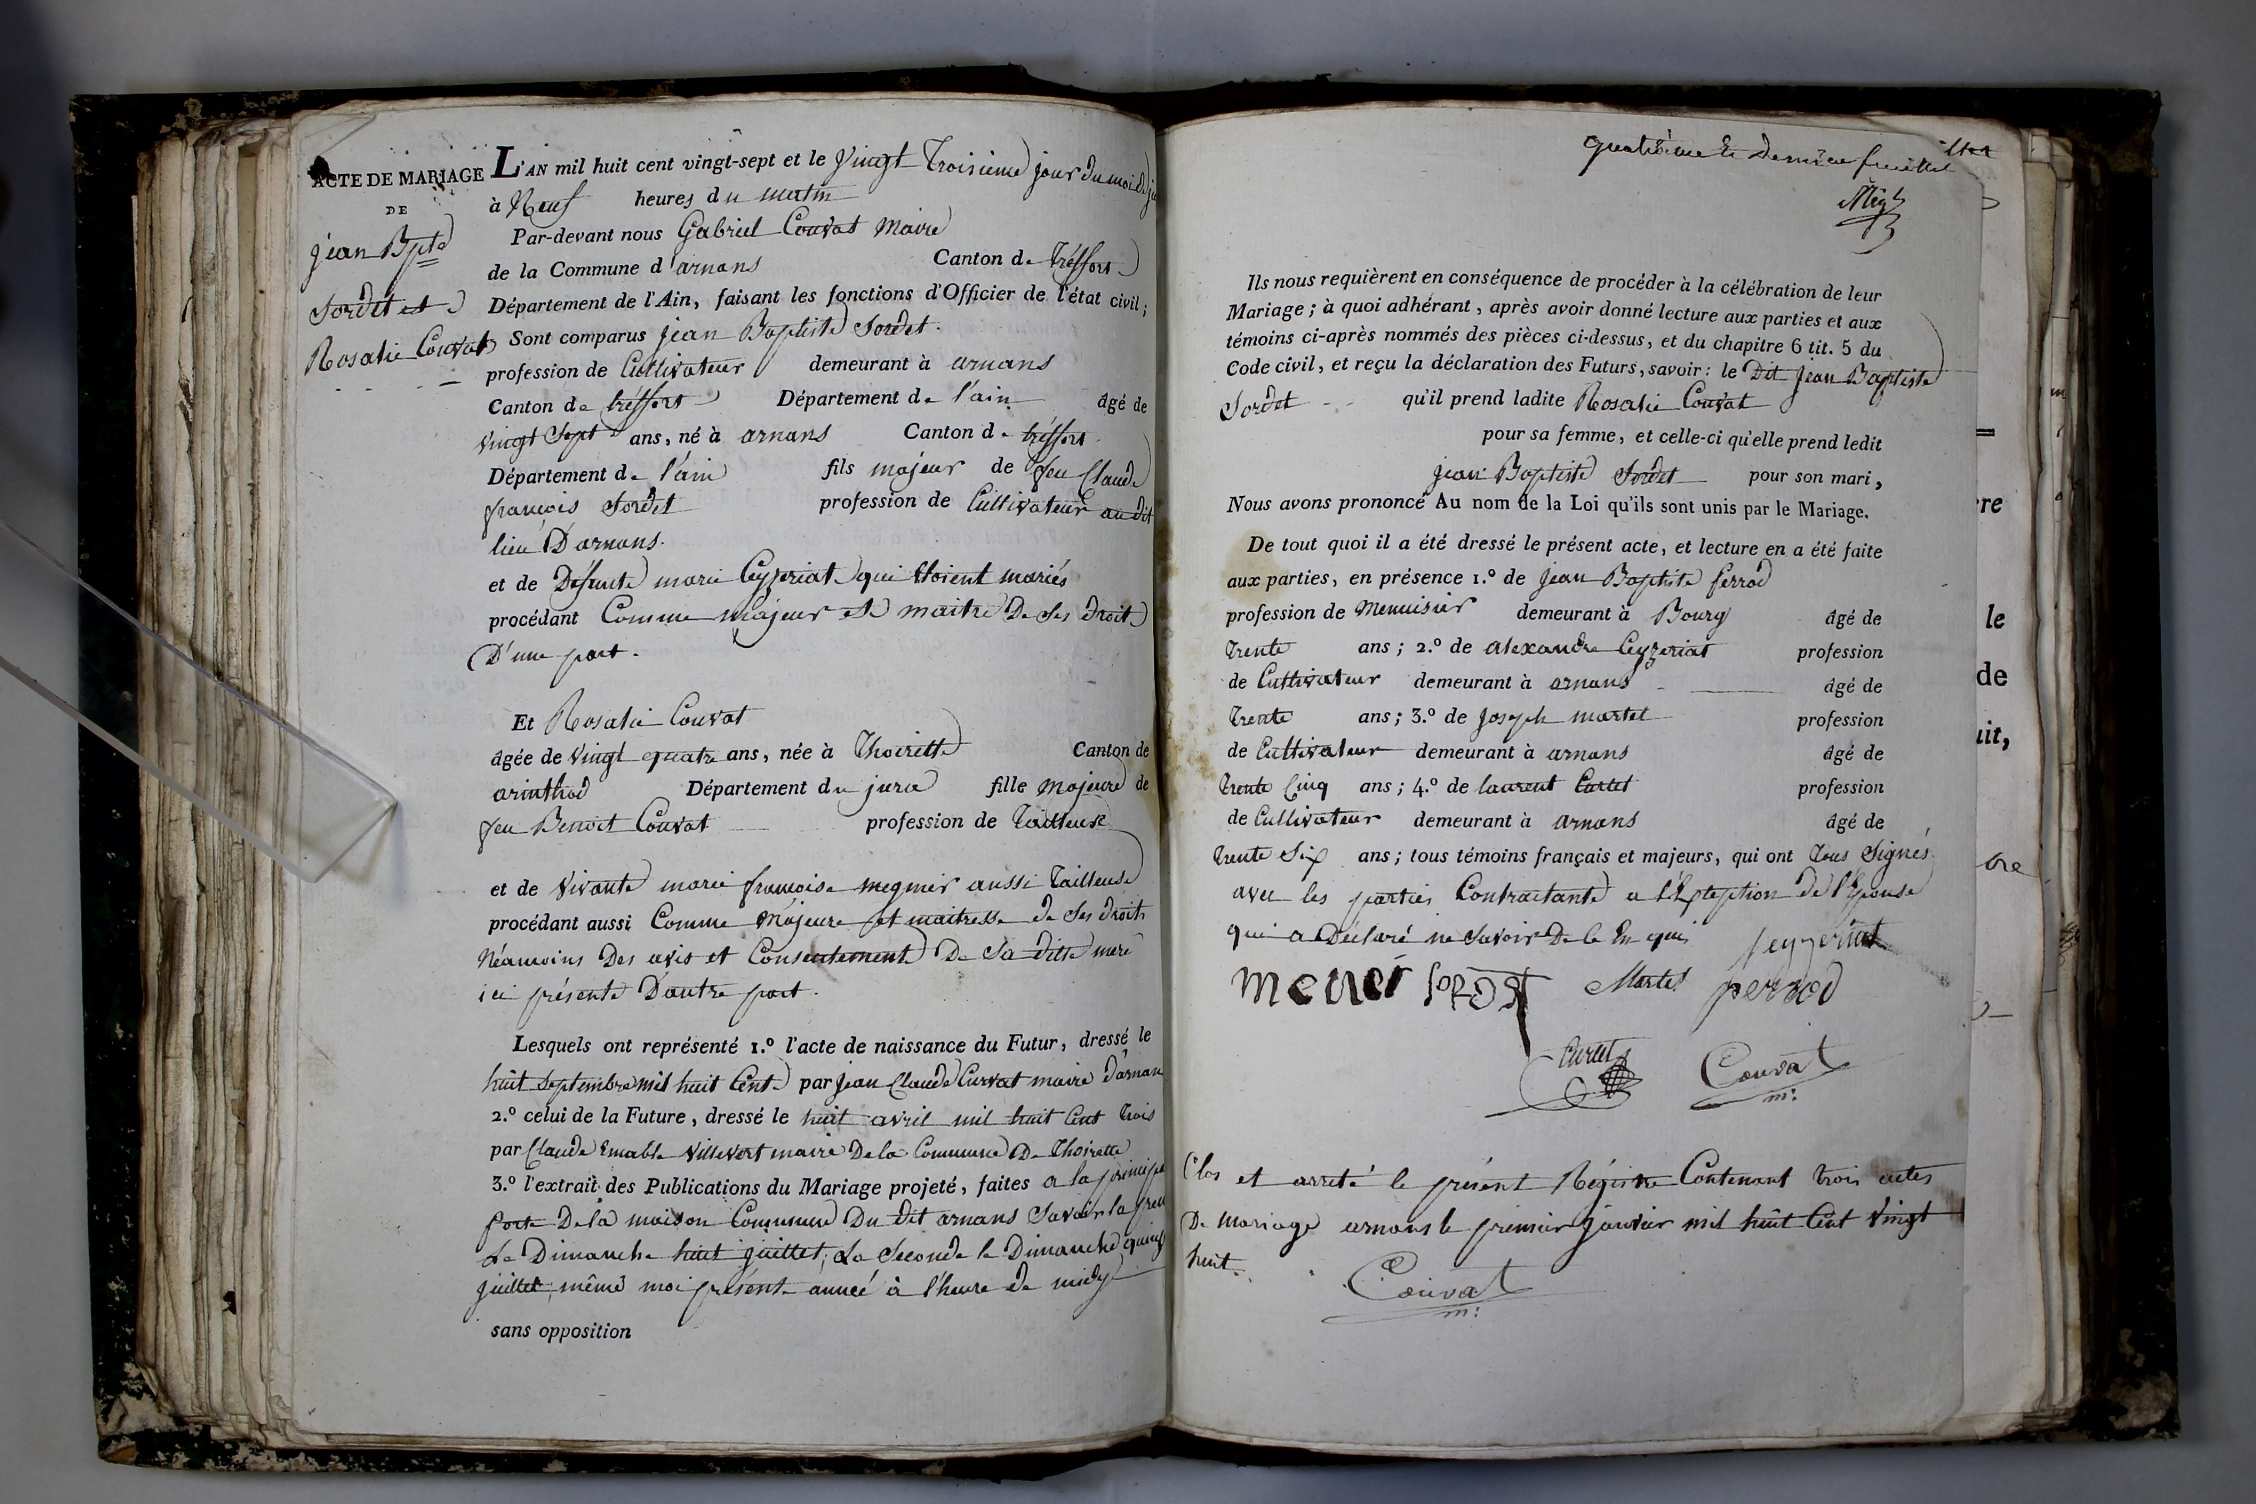 ACTE DE MARIAGE
DE
jean Bpte
Sordet et
Rosalie Couvat
L'AN mil huit cent vingt-sept et le vingt Troisieme jour du moi de
à Neuf heures du matin
Par-devant nous Gabriel Couvat Maire
de la Commune d'arnans Canton de tréffort
Département de l'Ain, faisant les fonctions d'Officier de l'état civil;
Sont comparus jean Baptiste Sordet.
profession de Cultivateur demeurant à arnans
Canton de tréffort Département de l'ain âgé de
vingt Sept ans, né à arnans Canton de tréffort
Département de l'ain fils majeur de feu Claude
françois Sordet profession de Cultivateur au dit
lieu D'arnans.
et de Defunte marie Ceyzeriat qui étoient mariés
procédant Comme majeur et maitre De Ses Droits
D'une part.
Et Rosalie Couvat
âgée de vingt quatre ans, née à Thoirette Canton de
arinthod Département du jura fille majeure de
feu Benoit Couvat profession de Tailleuse
et de vivante marie françoise megnier aussi Tailleuse
procédant aussi Comme Majeure et maitresse de Ses droits
Néamoins Des avis et Consentement De Sa ditte mere
ici présente D'autre part.
Lesquels ont représenté 1.º l'acte de naissance du Futur, dressé le
huit Septembre mil huit Cent par jean Claude Curvat maire d'arnan
2.º celui de la Future, dressé le huit avril mil huit Cent trois
par Claude Emable villevert maire De la Commune De Thoirette
3.º l'extrait des Publications du Mariage projeté, faites a la principe
porte De la maison Commune Du dit arnans Savoir la prem
Le Dimanche huit juillet, La Seconde le Dimanche quinz
juillet, même moi présente année à l'heure de midy
sans opposition
quatrième et Dernier feuillet
Ils nous requièrent en conséquence de procéder à la célébration de leur
Mariage; à quoi adhérant, après avoir donné lecture aux parties et aux
témoins ci-après nommés des pièces ci-dessus, et du chapitre 6 tit. 5 du
Code civil, et reçu la déclaration des Futurs, savoir: le Dit jean Baptiste
Sordet qu'il prend ladite Rosalie Couvat
pour sa femme, et celle-ci qu'elle prend ledit
jean Baptiste Sordet pour son mari,
Nous avons prononcé Au nom de la Loi qu'ils sont unis par le Mariage.
De tout quoi il a été dressé le présent acte, et lecture en a été faite
aux parties, en présence 1.º de jean Baptiste perrod
profession de Menuisier demeurant à Bourg âgé de
Trente ans; 2.º de alexandre Ceyzeriat profession
de Cultivateur demeurant à arnans âgé de
Trente ans; 3.º de joseph martel profession
de Cultivateur demeurant à arnans âgé de
Trente Cinq ans; 4.º de laurent Curtet profession
de Cultivateur demeurant à arnans âgé de
Trente Six ans; tous témoins français et majeurs, qui ont Tous Signés
avec les parties Contractante a l'Exteption de l'Epouse
qui a Déclaré ne Savoir De le En qui
Ceyzeriat
Sordet Martel perrod
Curtet Couvat
m:
Clos et arreté le présent Régistre Contenant trois actes
De mariage arnans le premier janvier mil huit Cent vingt
huit.
Couvat
m:
re
le
de
uit,